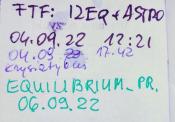 FTF: IZEQ + ASTRO
04.09.22 12:21
04.09.22 17:42
krysiatybus
EQUILIBRIUM_PR.
06.09.22